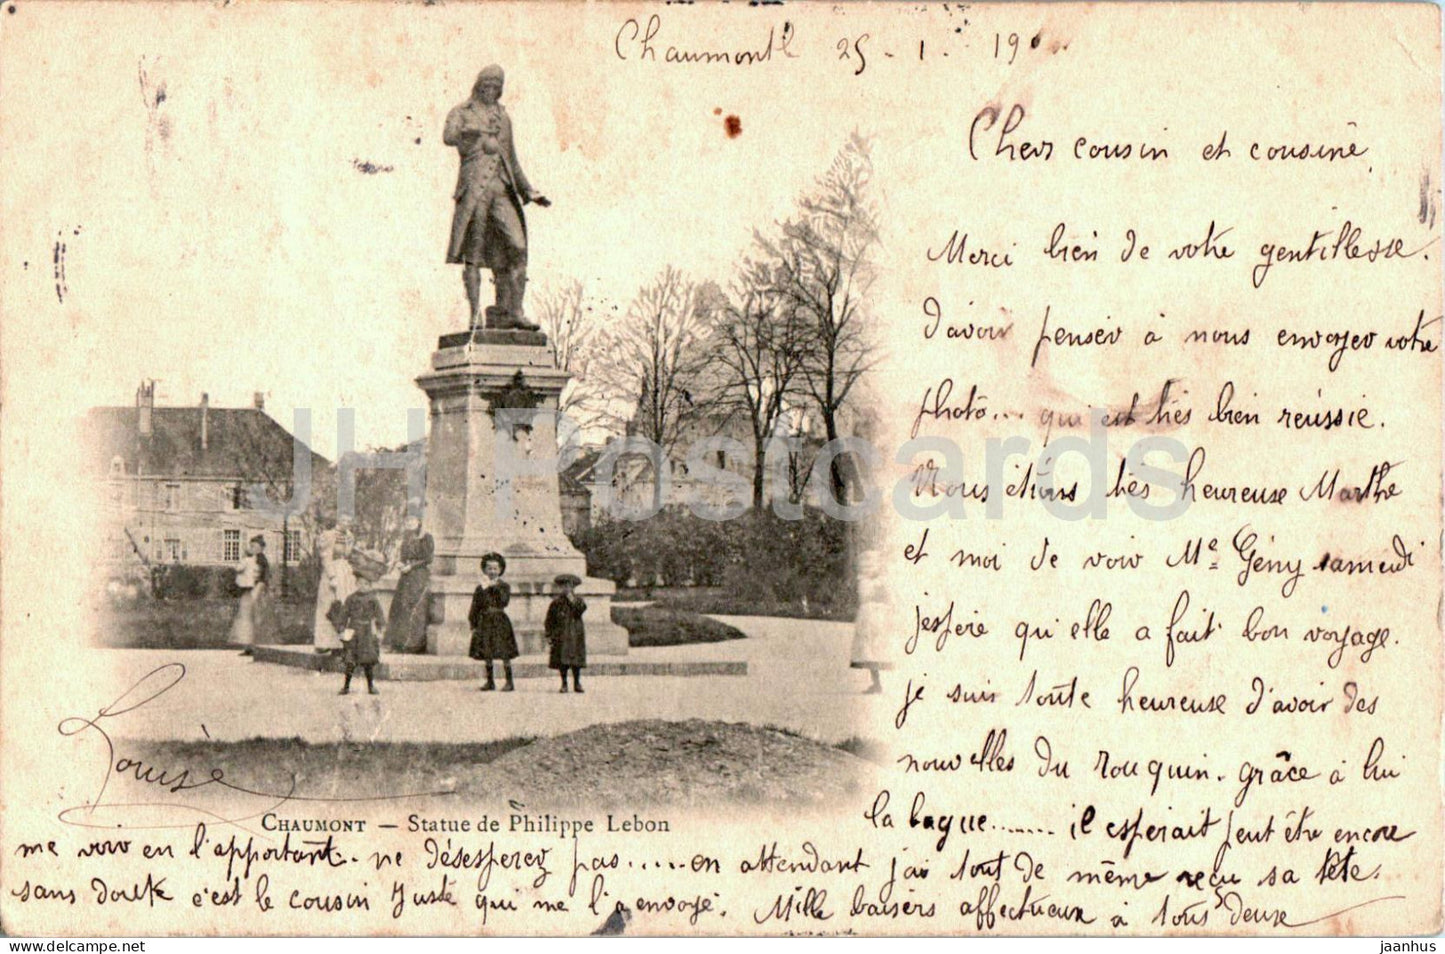 Chaumont le 25 - 1 - 19
Chers cousin et cousine
Merci bien de votre gentillesse.
d'avoir penser à nous envoyer votre
photo... qui est très bien réussie.
Nous étions très heureuse Marthe
et moi de voir Me Gény samedi
j'espère qu'elle a fait bon voyage.
je suis toute heureuse d'avoir des
nouvelles du rouquin. grâce à lui
la bague....... il esperait peut être encore
me voir en l'apportant.. ne désesperez pas.....en attendant j'ai tout de même reçu sa tête.
sans doute c'est le cousin Juste qui me l'a envoyé. Mille baisers affectueux à tous deux
Louise
CHAUMONT — Statue de Philippe Lebon
JH Postcards
www.delcampe.net
jaanhus